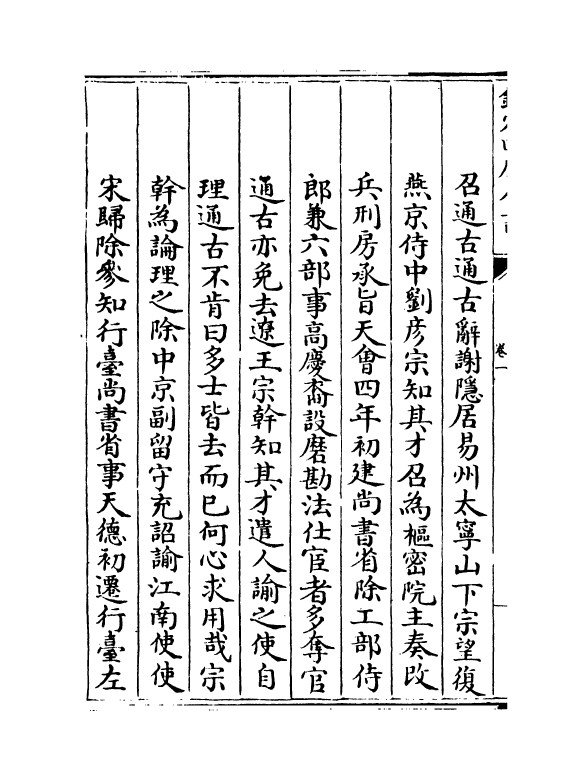 卷一
召通古通古辭謝隱居易州太寧山下宗望復
燕京侍中劉彦宗知其才召為樞密院主奏改
兵刑房承旨天會四年初建尚書省除工部侍
郎兼六部事高慶裔設磨勘法仕宦者多奪官
通古亦免去遼王宗幹知其才遣人諭之使自
理通古不肯曰多士皆去而已何心求用哉宗
幹為論理之除中京副留守充詔諭江南使使
宋歸除參知行臺尚書省事天德初遷行臺左